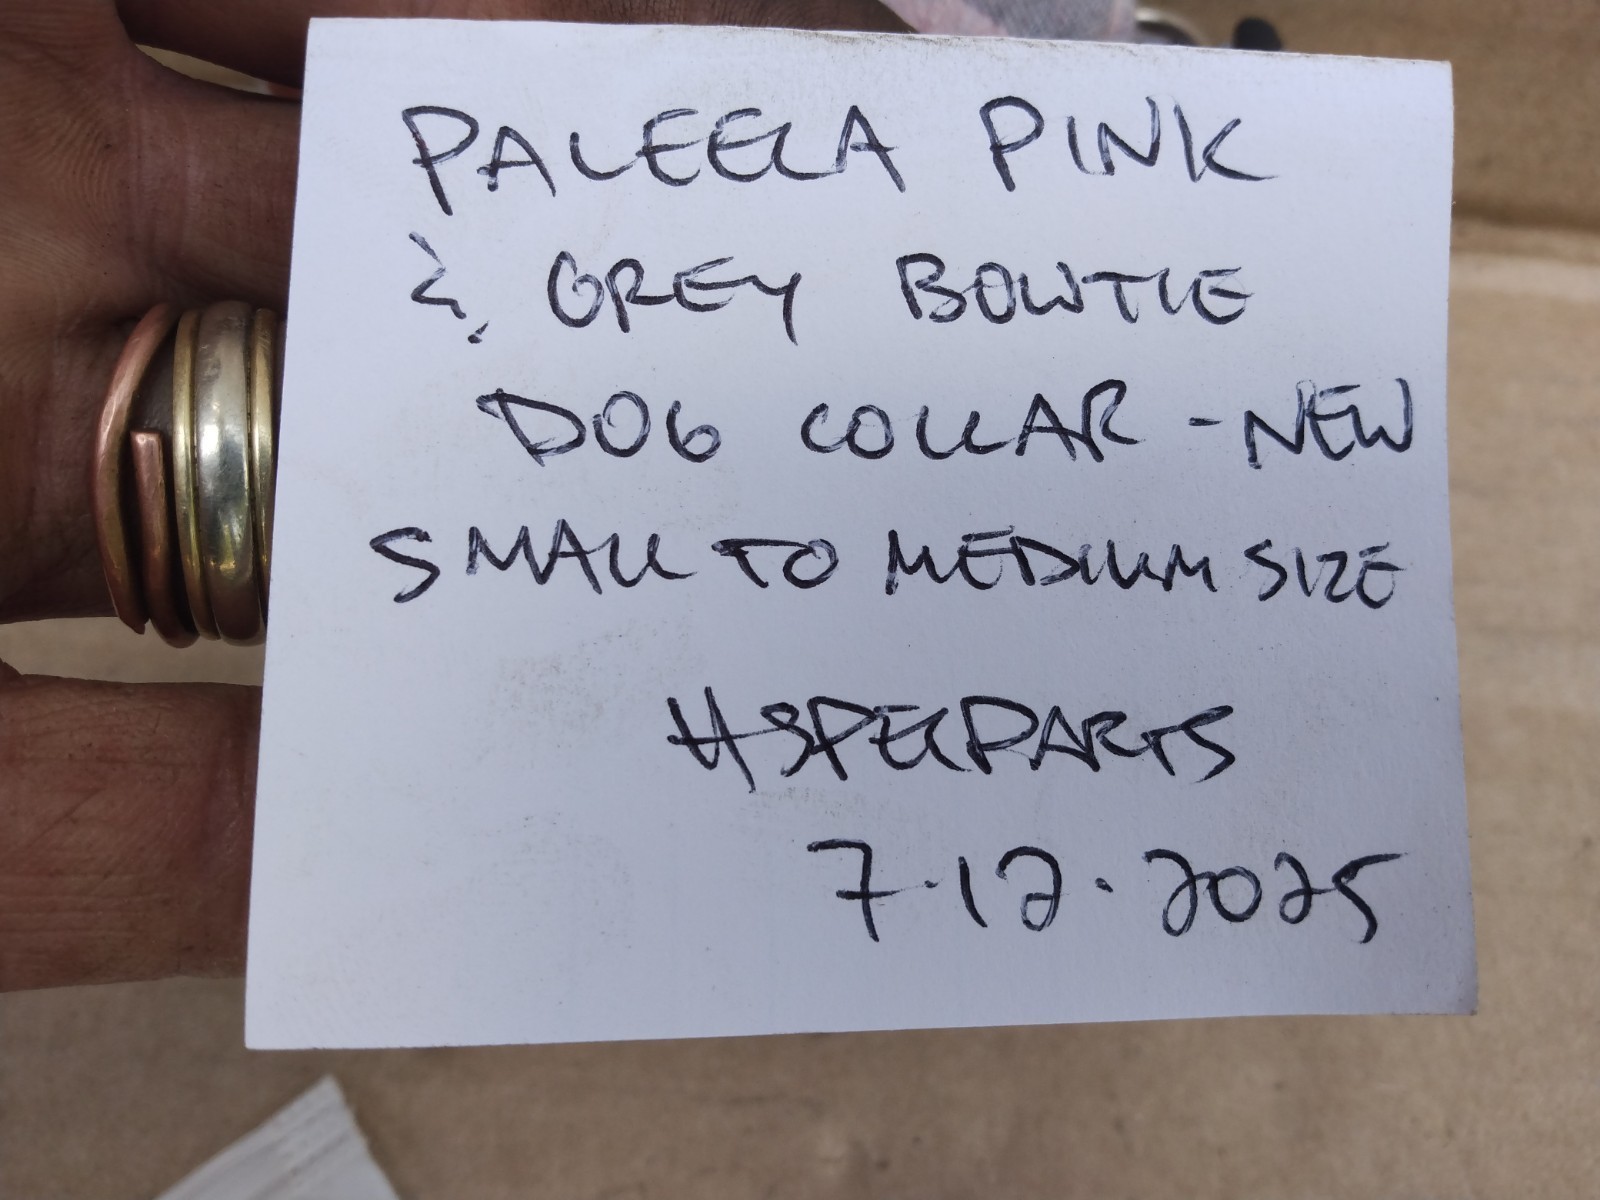 PALEELA PINK
& GREY BOWTIE
DOG COLLAR - NEW
SMALL TO MEDIUM SIZE
HSPECPARTS
7.12.2025